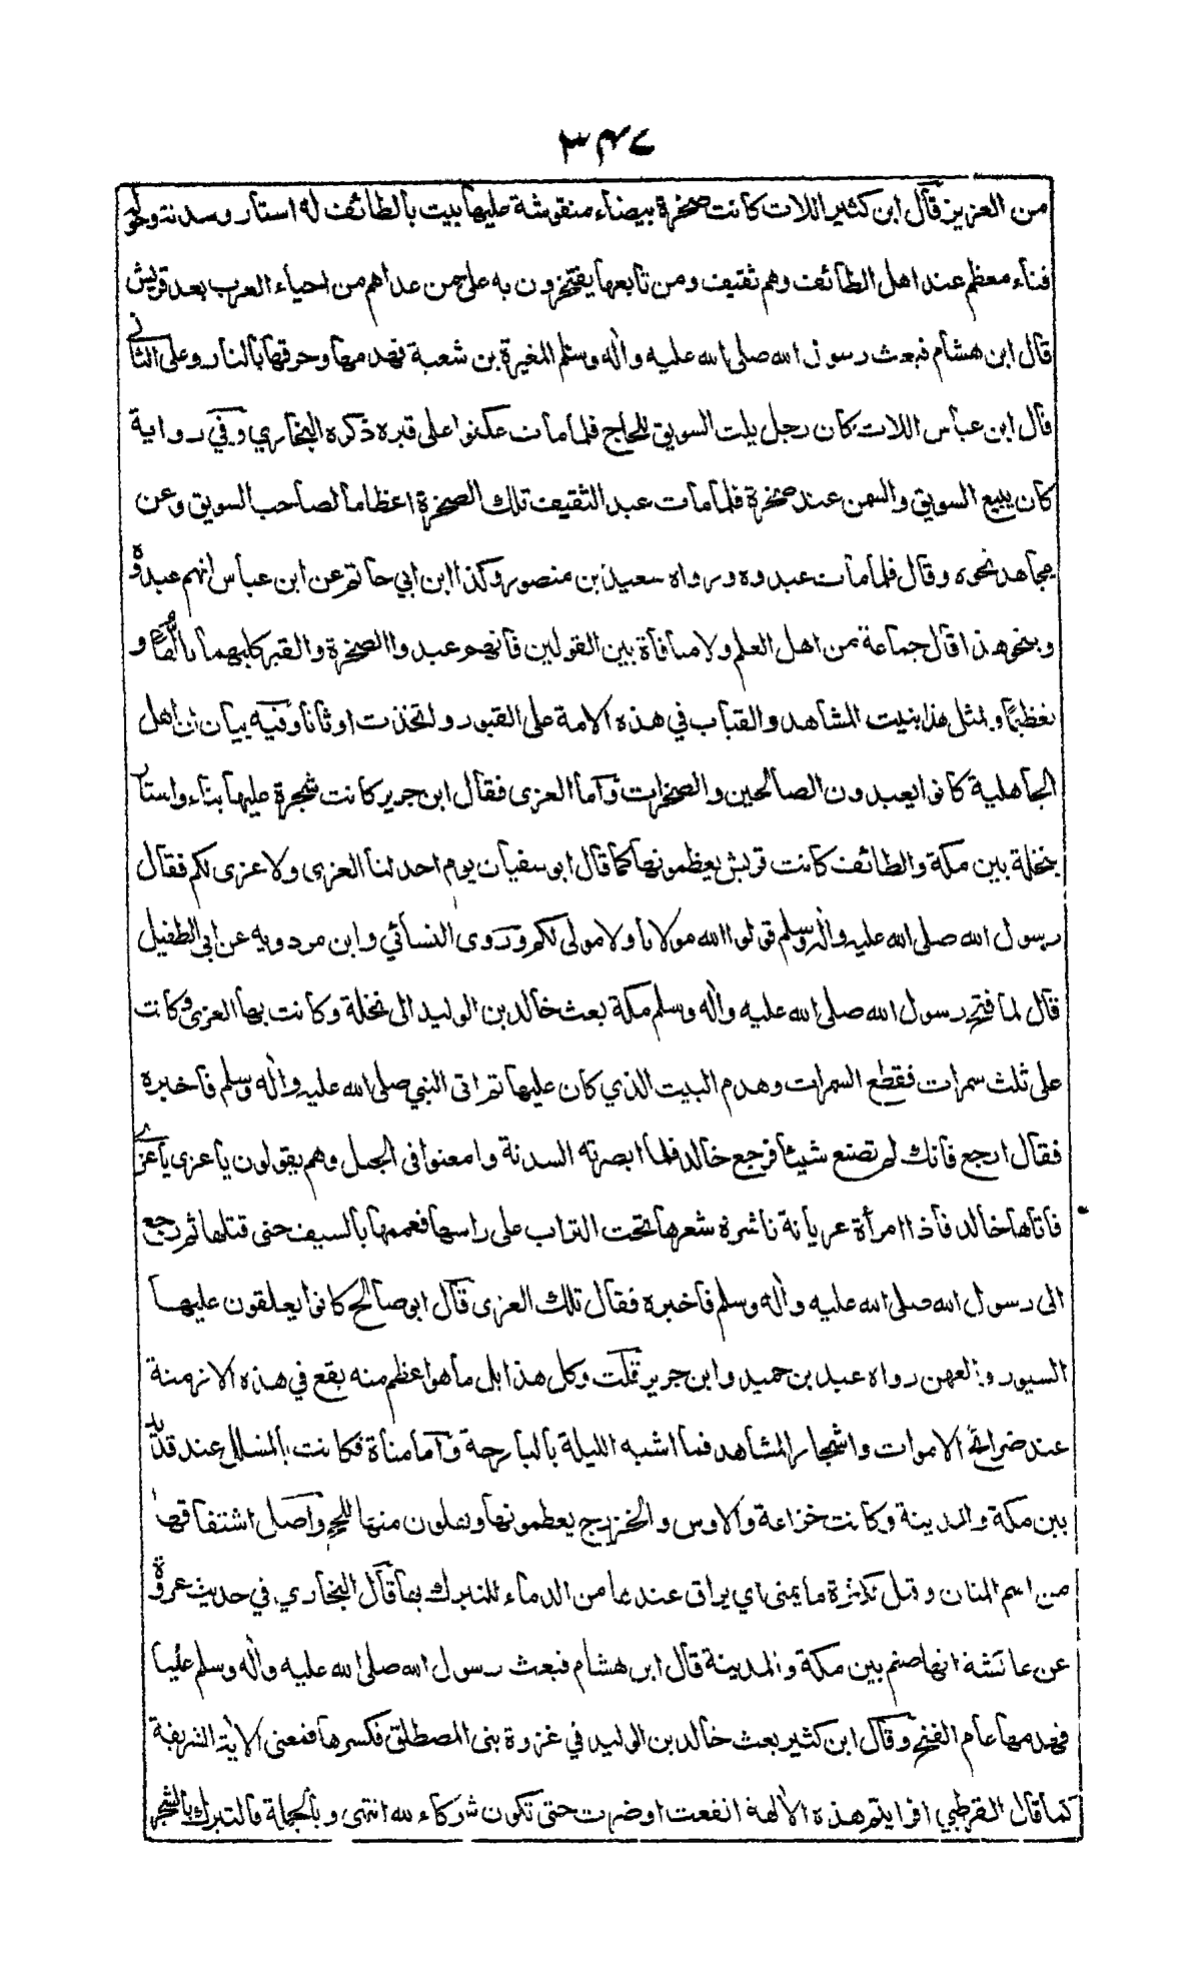 ٣٤٧
من العزيز قال ابن كثير اللات كانت صخرة بيضاء منقوشة عليها بيت بالطائف له استار وسدنة وحوله
فناء معظم عند اهل الطائف وهم ثقيف ومن تابعها يفتخرون به على من عداهم من احياء العرب بعد قريش
قال ابن هشام فبعث رسول الله صلى الله عليه واٰله وسلم المغيرة بن شعبة فهدمها وحرقها بالنار وعلى الثاني
قال ابن عباس اللات كان رجل يلت السويق للحاج فلما مات عكفوا على قبره ذكره البخاري وفي رواية
كان يبيع السويق والسمن عند صخرة فلما مات عبد الثقيف تلك الصخرة اعظاما لصاحب السويق وعن
مجاهد نحوه وقال فلما مات عبدوه ورواه سعيد بن منصور وكذا ابن ابي حاتم عن ابن عباس انهم عبدوه
وبنحو هذا قال جماعة من اهل العلم ولا منافاة بين القولين فانهم عبدوا الصخرة والقبر كليهما و
تعظيما وبمثل هذا بنيت المشاهد والقباب في هذه الامة على القبور واتخذت اوثانا وفيه بيان ان اهل
الجاهلية كانوا يعبدون الصالحين والصخرات واما العزى فقال ابن جرير كانت شجرة عليها بناء واستار
بنخلة بين مكة والطائف كانت قريش يعظمونها كما قال ابو سفيان يوم احد لنا العزى ولا عزى لكم فقال
رسول الله صلى الله عليه واٰله وسلم قولوا الله مولانا ولا مولى لكم وروى النسائي وابن مردويه عن ابي الطفيل
قال لما فتح رسول الله صلى الله عليه واٰله وسلم مكة بعث خالد بن الوليد الى نخلة وكانت بها العزى وكانت
على ثلث سمرات فقطع السمرات وهدم البيت الذي كان عليها ثم اتى النبي صلى الله عليه واٰله وسلم فاخبره
فقال ارجع فانك لم تصنع شيئا فرجع خالد فلما ابصرته السدنة وامعنوا في الجبل وهم يقولون يا عزى يا عزى
فاتاها خالد فاذا امرأة عريانة ناشرة شعرها تحت التراب على راسها فعممها بالسيف حتى قتلها ثم رجع
الى رسول الله صلى الله عليه واٰله وسلم فاخبره فقال تلك العزى قال ابو صالح كانوا يعلقون عليها
السيور والعهن رواه عبد بن حميد وابن جرير قلت وكل هذا بل ما هو اعظم منه يقع في هذه الازمنة
عند ضرائح الاموات واشجار المشاهد فما اشبه الليلة بالبارحة واما مناة فكانت بالمشلل عند قديد
بين مكة والمدينة وكانت خزاعة والاوس والخزرج يعظمونها ويهلون منها للحج واصل اشتقاقها
من اسم المنان وقيل لكثرة ما يمنى اي يراق عندها من الدماء للتبرك بها قال البخاري في حديث عروة
عن عائشة انها صنم بين مكة والمدينة قال ابن هشام فبعث رسول الله صلى الله عليه واٰله وسلم عليا
فهدمها عام الفتح وقال ابن كثير بعث خالد بن الوليد في غزوة بنى المصطلق فكسرها فمعنى الاٰية الشريفة
كما قال القرطبي افرايتم هذه الاٰلهة انفعت او ضرت حتى تكون شركاء لله انتهى وبالجملة فالتبرك بالشجر